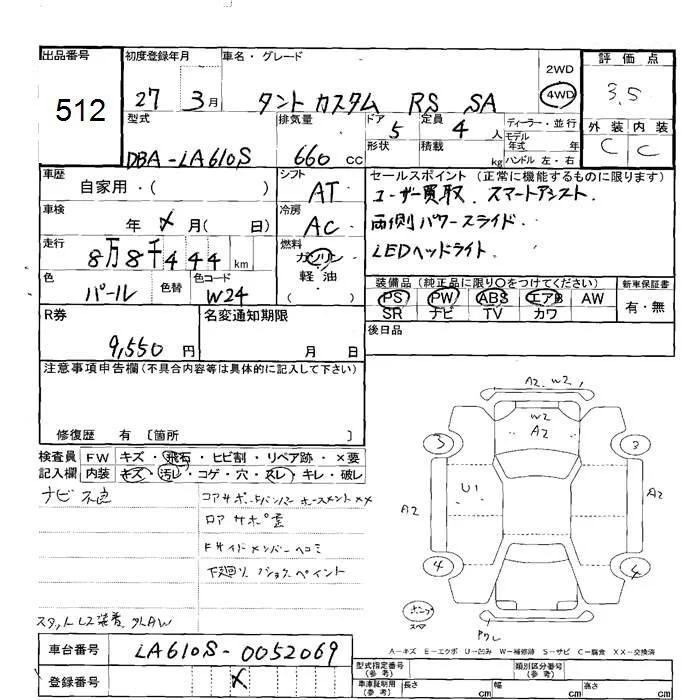 出品番号
512
初度登録年月
27 3月
車名・グレード
タント カスタム RS SA
2WD
4WD
評価点
3.5
外装 内装
C C
型式
DBA-LA610S
排気量
660 cc
ドア
5
形状
定員
4 人
積載
kg
ディーラー・並行
モデル
年式 年
ハンドル 左・右
車歴
自家用・( )
シフト
AT
セールスポイント (正常に機能するものに限ります)
ユーザー買取. スマートアシスト.
両側パワースライド.
LEDヘッドライト.
車検
年 月( 日)
冷房
AC
走行
8万8千444 km
燃料
ガソリン
軽油
( )
色
パール
色替
色コード
W24
装備品 (純正品に限り○をつけてください)
PS PW ABS エアB AW
SR ナビ TV カワ
新車保証書
有・無
R券
9,550 円
名変通知期限
月 日
後日品
注意事項申告欄 (不具合内容等は具体的に記入して下さい)
修復歴 有 〔箇所 〕
検査員
記入欄
FW キズ・飛石・ヒビ割・リペア跡・×要
内装 キズ・汚レ・コゲ・穴・スレ・キレ・破レ
ナビ不良
コアサポート
ロアサポ
Fサイドメンバーヘコミ
下廻り ペイント
スタットレス装着
A2. W2
W2
A2
3
3
U1
A2
A2
4
4
スペア
A-キズ E-エクボ U-凹み W-補修跡 S-サビ C-腐食 XX-交換済
車台番号
LA610S-0052069
登録番号
型式指定番号
(参考)
類別区分番号
(参考)
車庫証明用
(参考)
長さ cm
幅 cm
高さ cm